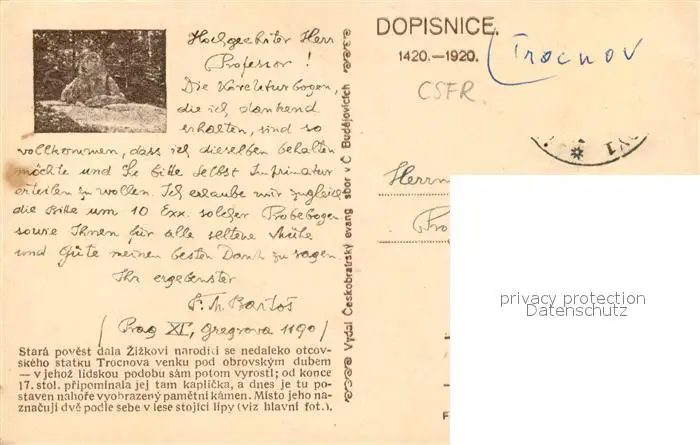 Hochgeehrter Herr
Professor !
Die Korrekturbogen,
die ich dankend
erhalten, sind so
vollkommen, dass ich dieselben behalten
möchte und Sie bitte selbst Imprimatur
erteilen zu wollen. Ich erlaube mir zugleich
die Bitte um 10 Exx. solcher Probebogen
sowie Ihnen für alle seltene Mühe
und Güte meinen besten Dank zu sagen.
Ihr ergebenster
F. M. Bartoš
/ Prag XI, Gregrova 1190 /
Stará pověst dala Žižkovi naroditi se nedaleko otcov-
ského statku Trocnova venku pod obrovským dubem
— v jehož lidskou podobu sám potom vyrostl; od konce
17. stol. připomínala jej tam kaplička, a dnes je tu po-
staven nahoře vyobrazený pamětní kámen. Místo jeho na-
značují dvě podle sebe v lese stojící lípy (viz hlavní fot.).
Vydal Českobratrský evang. sbor v Č. Budějovicích
DOPISNICE.
1420.—1920.
Trocnov
CSFR
Herrn
Pro
privacy protection
Datenschutz